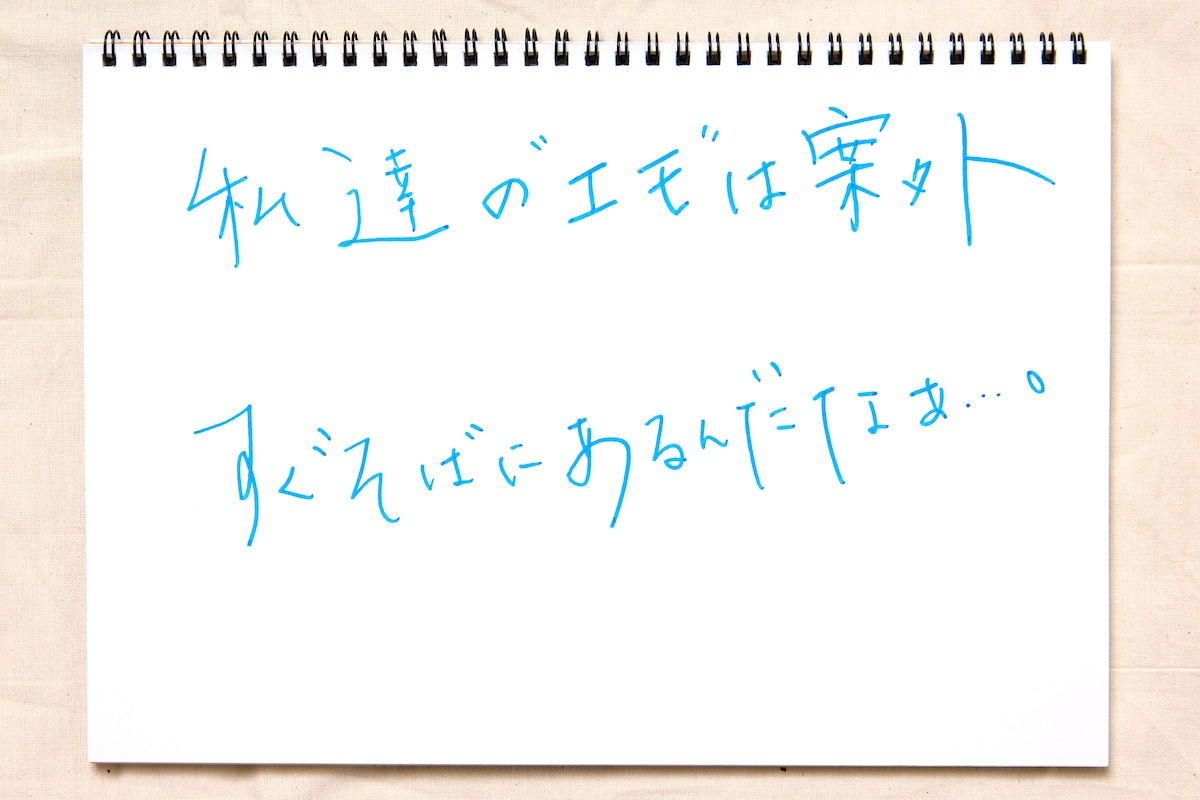 私達の"エモ"は案外
すぐそばにあるんだなぁ…。